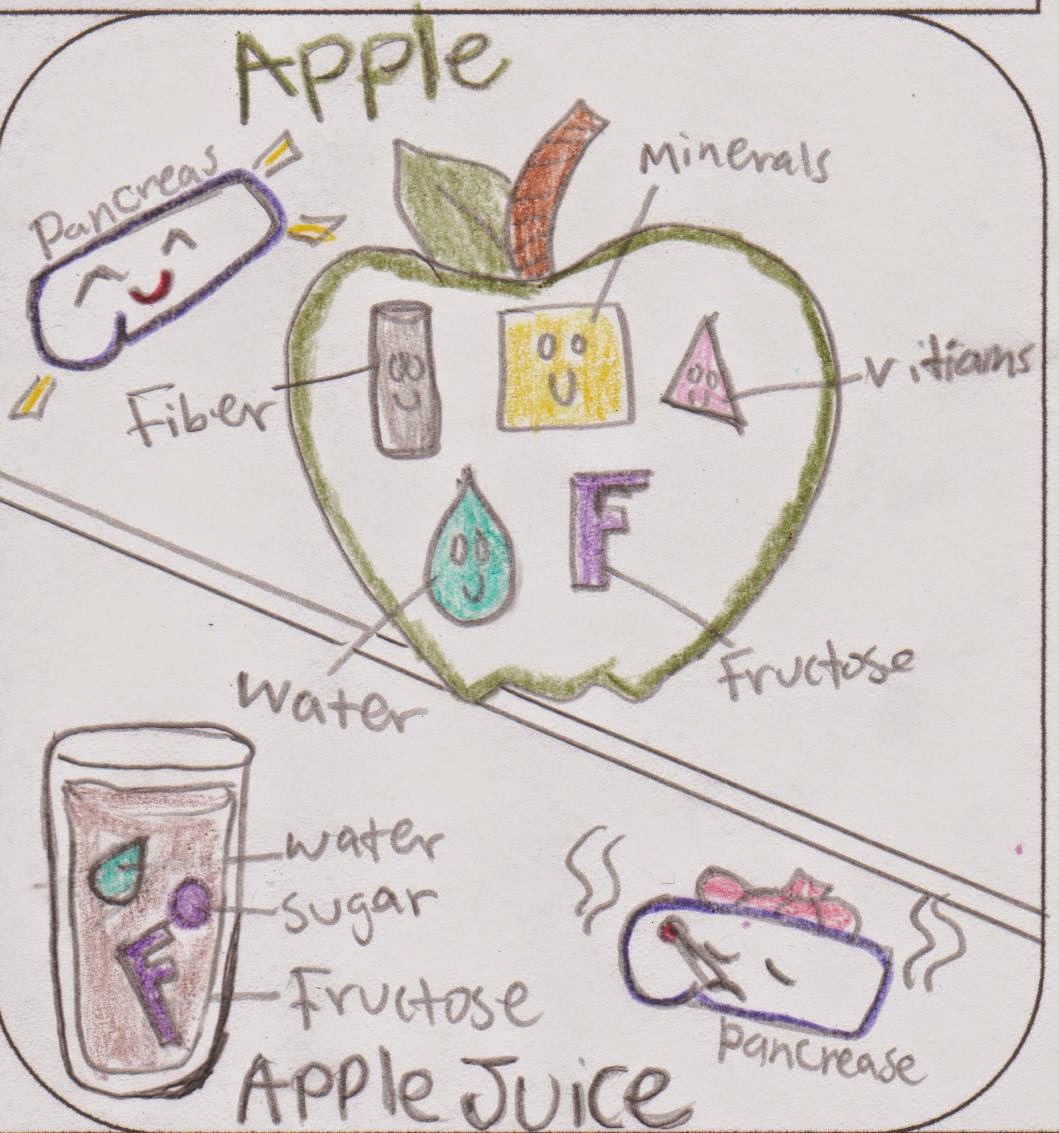 Apple
Minerals
Pancreas
Vitiams
Fiber
F
Fructose
Water
water
sugar
F
Fructose
pancrease
Apple Juice